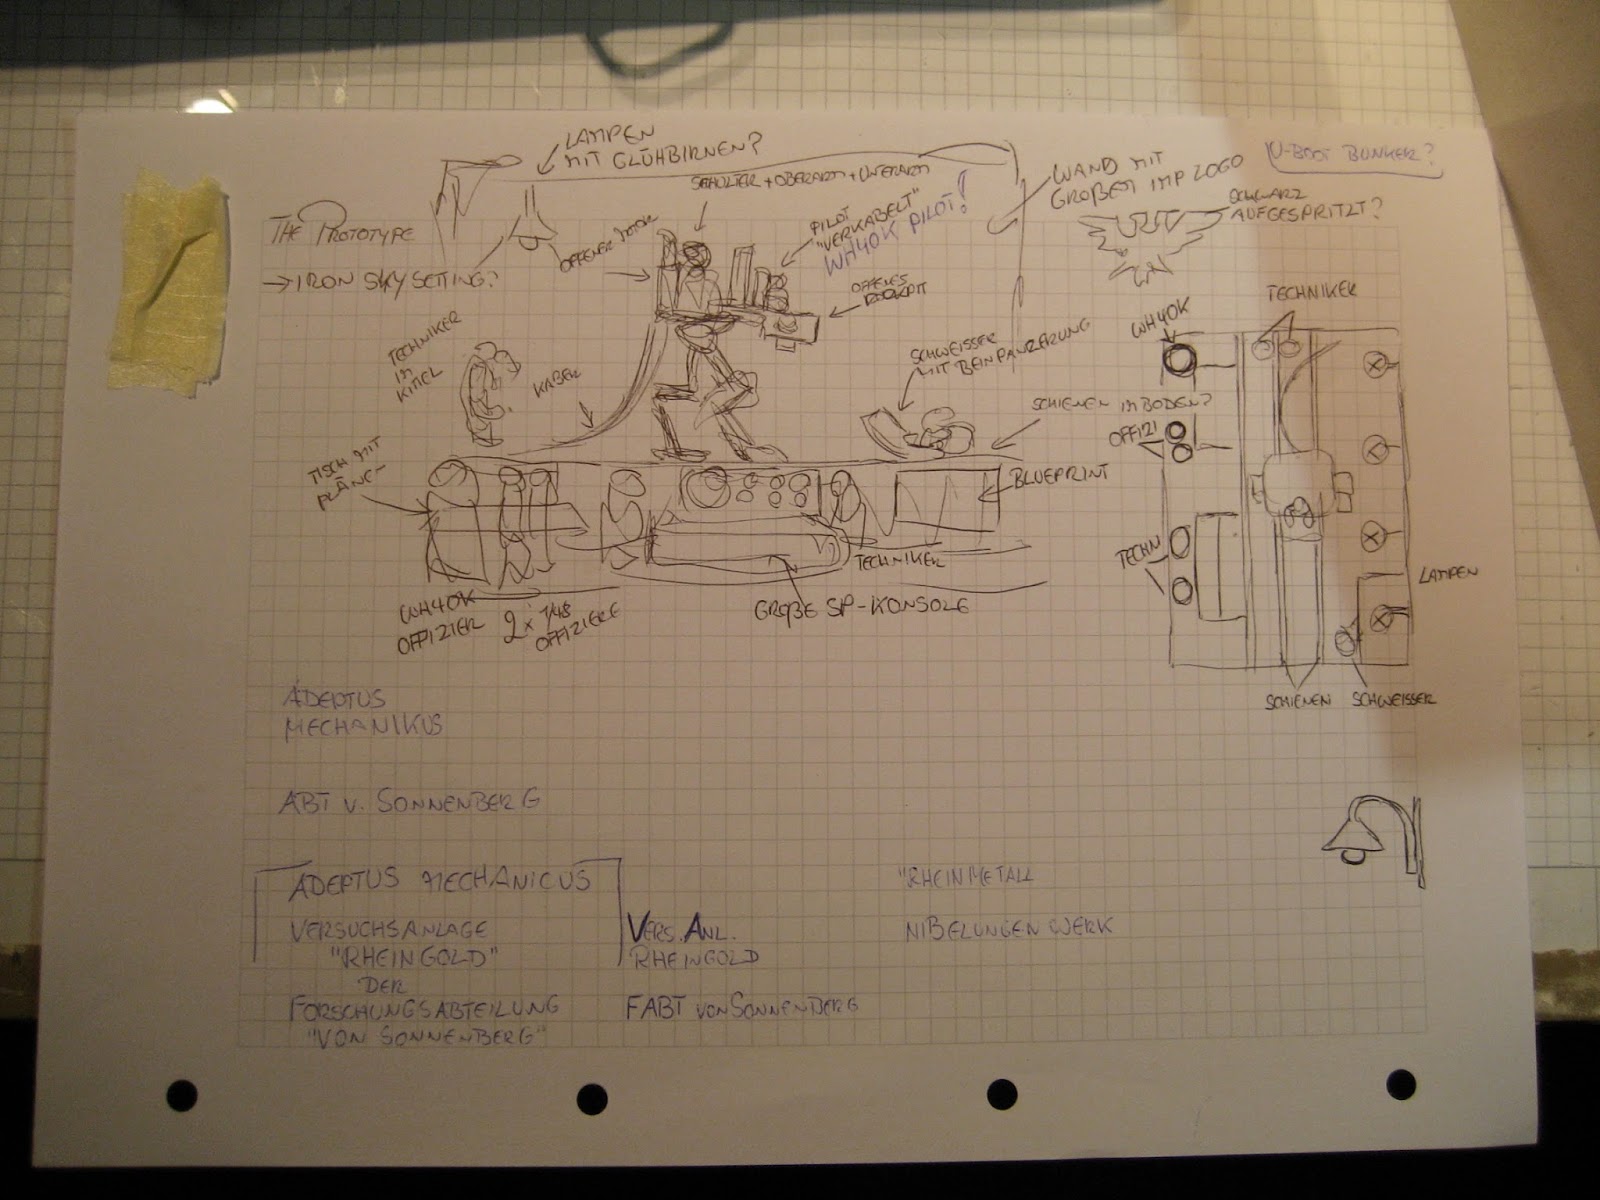 LAMPEN
MIT GLÜHBIRNEN?
SCHULTER + OBERARM + UNTERARM
WAND MIT
GROßEM IMP LOGO
U-BOOT BUNKER?
SCHWARZ
AUFGESPRITZT?
THE PROTOTYPE
→ IRON SKY SETTING?
OFFENER MOTOR
PILOT
"VERKABELT"
WH40K PILOT!
OFFENES
COCKPIT
TECHNIKER
IM
KITTEL
KABEL
SCHWEISSER
MIT BEINPANZERUNG
SCHIENEN IM BODEN?
TISCH MIT
PLÄNE
BLUEPRINT
TECHNIKER
WH40K
OFFIZIER
2x 1/48
OFFIZIERE
GROßE SP-KONSOLE
TECHNIKER
WH40K
OFFIZI
TECHN
LAMPEN
SCHIENEN
SCHWEISSER
ADEPTUS
MECHANIKUS
ABT v. SONNENBERG
ADEPTUS MECHANICUS
VERSUCHSANLAGE
"RHEINGOLD"
DER
FORSCHUNGSABTEILUNG
"VON SONNENBERG"
VERS. ANL.
RHEINGOLD
FABT VON SONNENBERG
"RHEINMETALL
NIBELUNGEN WERK